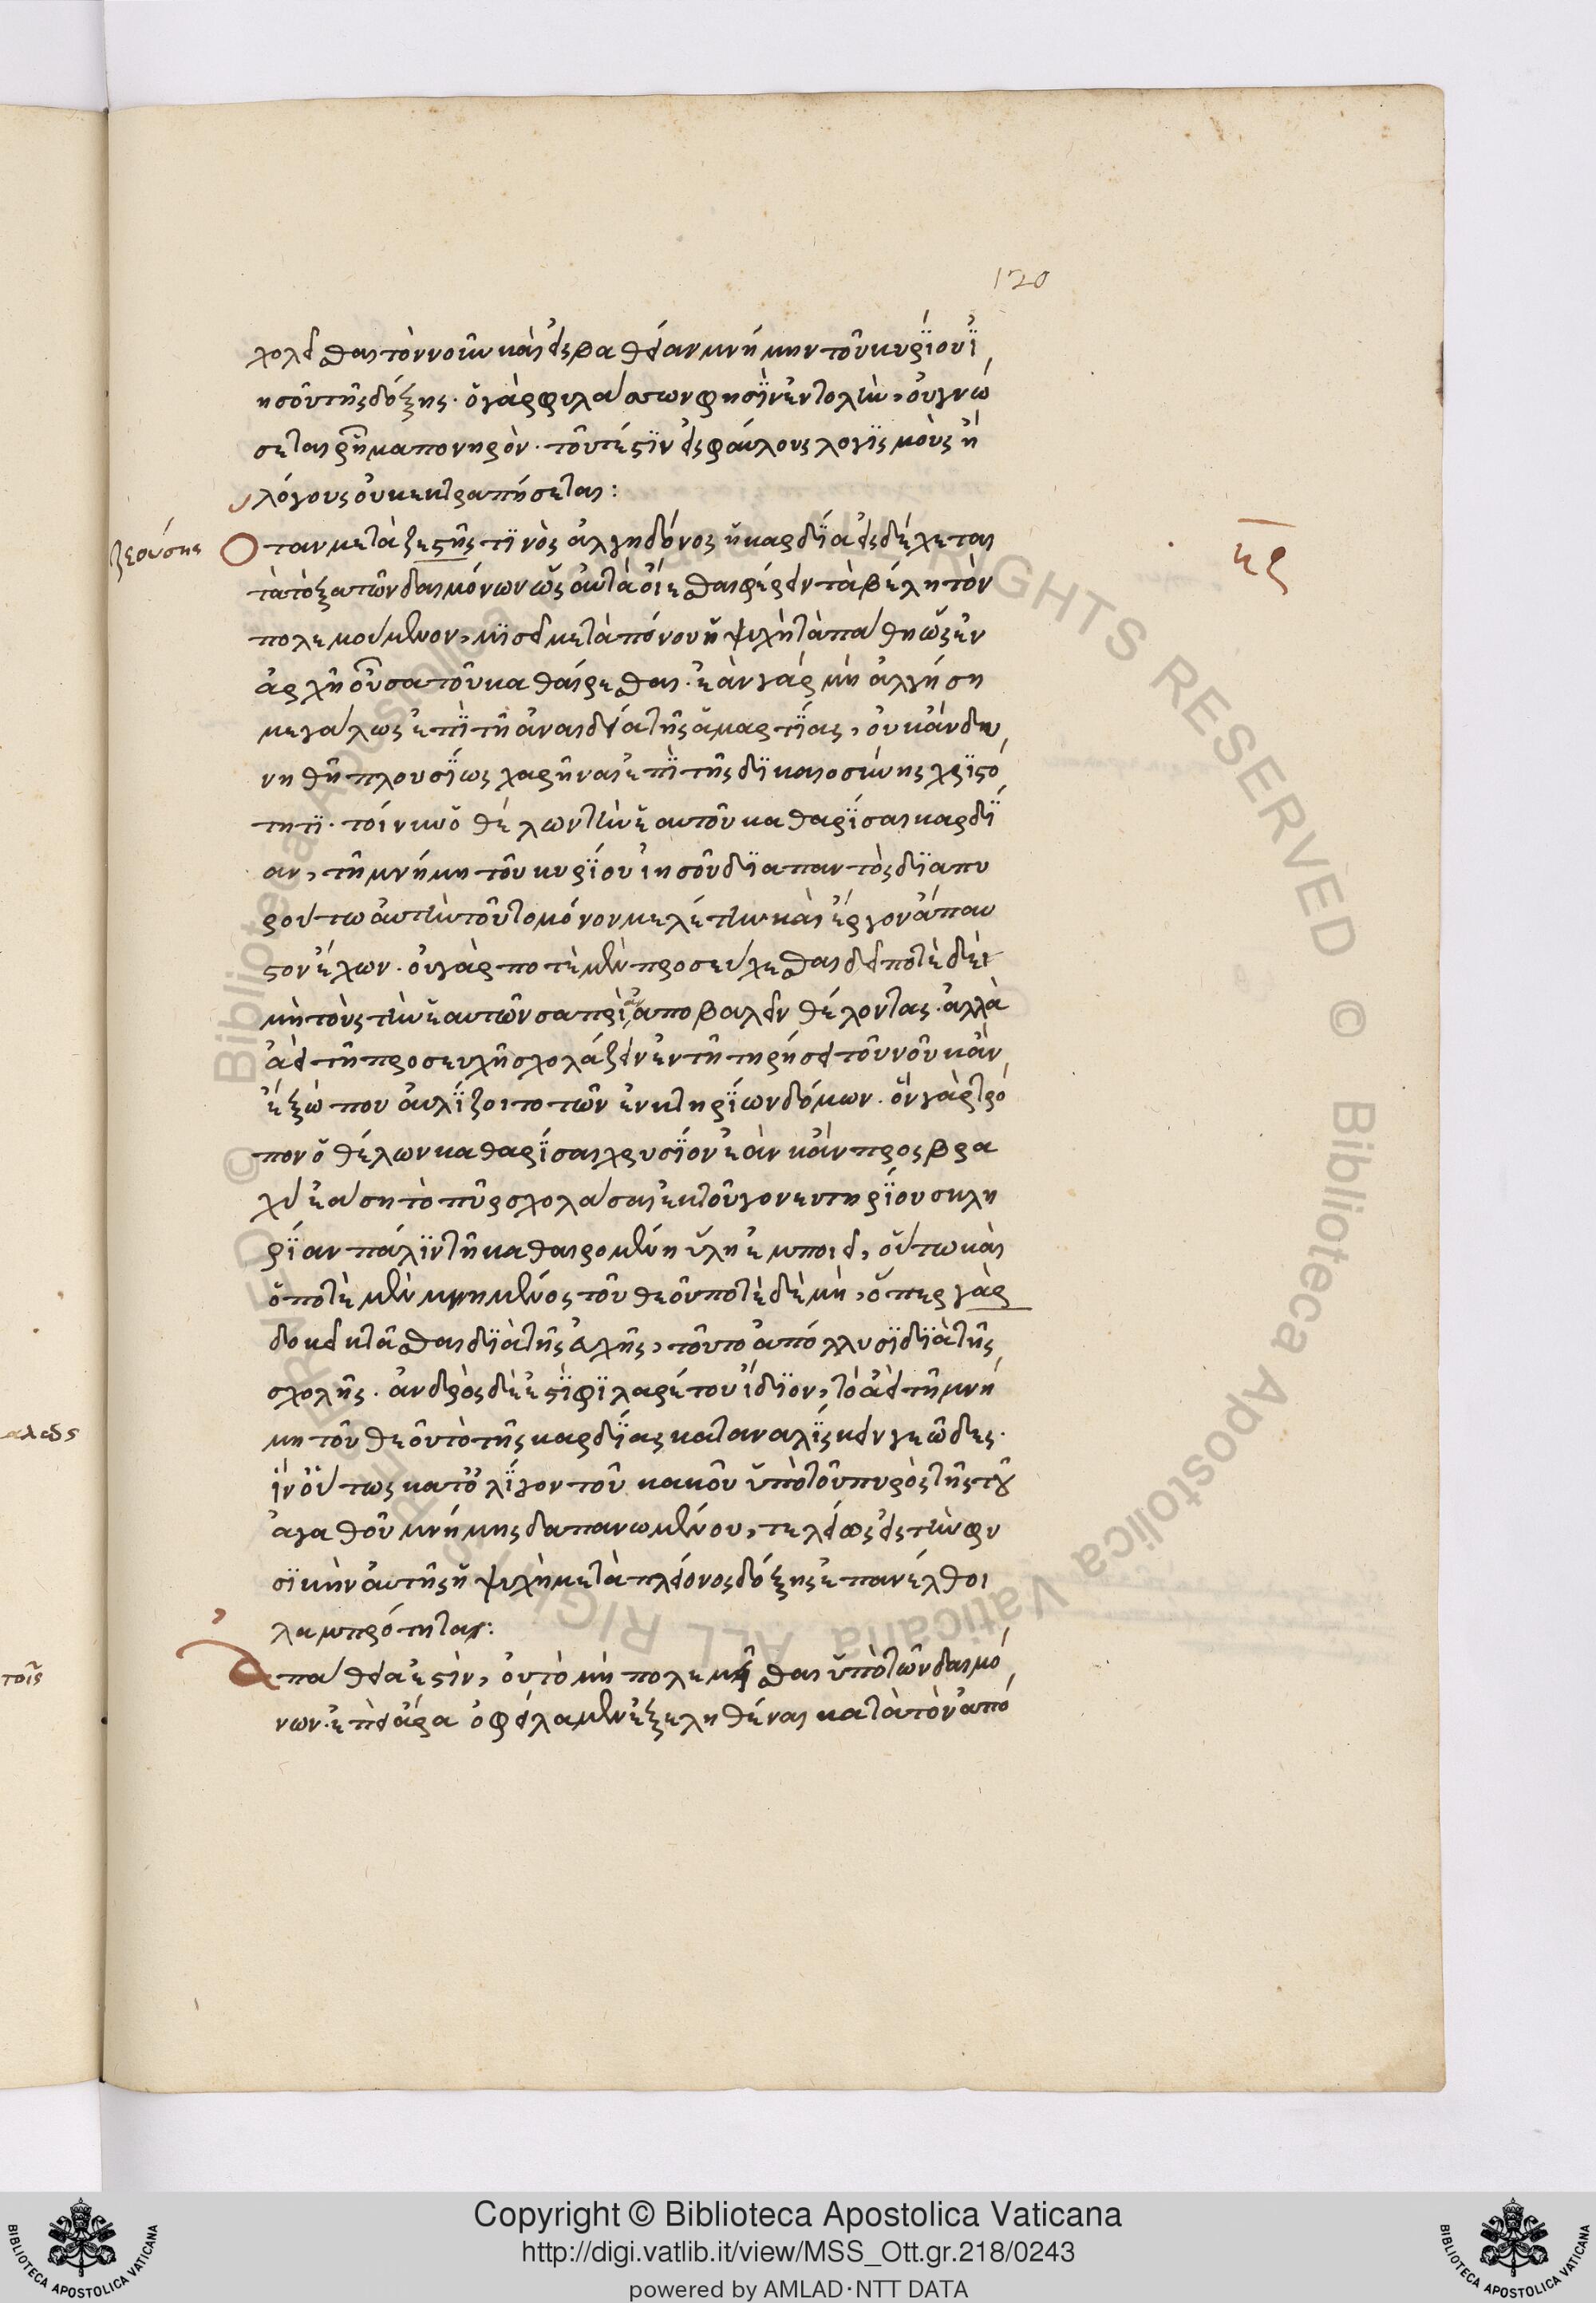 120
χολεῖσθαι τὸν νοῦν καὶ εἰς βαθεῖαν μνήμην τοῦ κυρΐου ϊ
ησοῦ τῆς δόξης· ὁ γὰρ φυλάσσων φησῒν ἐντολὴν, οὐ γνώ
σεται ρῆμα πονηρὸν· τοῦτέστϊν εἰς φαύλους λογϊσμοὺς ἢ
λόγους οὐκ ἐκτραπήσεται:
ζεούσης
Οταν μετὰ ζεστῆς τϊνὸς ἀλγηδόνος ἡ καρδΐα εἰσδέχεται
κϛ
τὰ τόξα τῶν δαιμόνων ὡς αὐτὰ οἴεσθαι φέρειν τὰ βέλη τὸν
πολεμούμενον, μϊσεῖ μετὰ πόνου ἡ ψυχὴ τὰ πάθη ὡς ἐν
ἀρχῆ οὖσα τοῦ καθαίρεσθαι· ἐὰν γάρ μὴ ἀλγήση
μεγάλως ἐπῒ τῆ ἀναιδεία τῆς ἁμαρτΐας, οὐκ ἂν δυ
νηθῆ πλουσΐως χαρῆναι ἐπῒ τῆς δϊκαιοσύνης χρϊστό
τητϊ· τοίνυν ὁ θέλων τὴν ἑαυτοῦ καθαρΐσαι καρδΐ
αν, τῆ μνήμη τοῦ κυρΐου ἰησοῦ δϊαπαντὸς δϊαπυ
ρούτω αὐτὴν τοῦτο μόνον μελέτην καὶ ἔργον ἄπαυ
στον ἔχων· οὐ γὰρ ποτὲ μὲν προσεύχεσθαι δεῖ ποτὲ δὲ
μὴ τοὺς τὴν ἑαυτῶν σαπρΐαν ἀποβαλεῖν θέλοντας· ἀλλὰ
ἀεὶ τῆ προσευχῆ σχολάζειν ἐν τῆ τηρήσει τοῦ νοῦ κἂν
ἔξώ που αὐλΐζοιτο τῶν ἐυκτηρΐων δόμων· ὃν γὰρ τρό
πον ὁ θέλων καθαρΐσαι χρυσΐον ἐὰν κἂν προς βρα
χὺ ἐάση τὸ πῦρ σχολάσαι ἐκ τοῦ χονευτηρΐου σκλη
ρΐαν πάλϊν τῆ καθαιρομένη ὕλη ἐμποιεῖ, οὕτω καὶ
ὁ ποτὲ μὲν μνημένος τοῦ θεοῦ ποτὲ δὲ μὴ, ὅπερ γὰρ
δοκεῖ κτᾶσθαι δϊὰ τῆς εὐχῆς, τοῦτο ἀπόλλυσϊ δϊὰ τῆς
σχολῆς· ἀνδρὸς δὲ ἐστῒ φϊλαρέτου ἴδϊον, τὸ ἀεὶ τῆ μνή
μη τοῦ θεοῦ τὸ τῆς καρδΐας καταναλΐσκειν γεῶδες·
ἵν οὕτως κατ ὀλΐγον τοῦ κακοῦ ὑπὸ τοῦ πυρὸς τῆς τοῦ
ἀγαθοῦ μνήμης δαπανωμένου, τελείως εἰς τὴν φυ
σϊκὴν αὐτῆς ἡ ψυχὴ μετὰ πλείονος δόξης ἐπανέλθοι
λαμπρότητα:
Ἀπάθεια ἐστὶν, οὐ τὸ μὴ πολεμεῖσθαι ὑπὸ τῶν δαιμό
νων· ἐπεὶ ἄρα ὀφείλαμεν ἐξεληθέναι κατὰ τὸν ἀπό
Copyright © Biblioteca Apostolica Vaticana
http://digi.vatlib.it/view/MSS_Ott.gr.218/0243
powered by AMLAD·NTT DATA